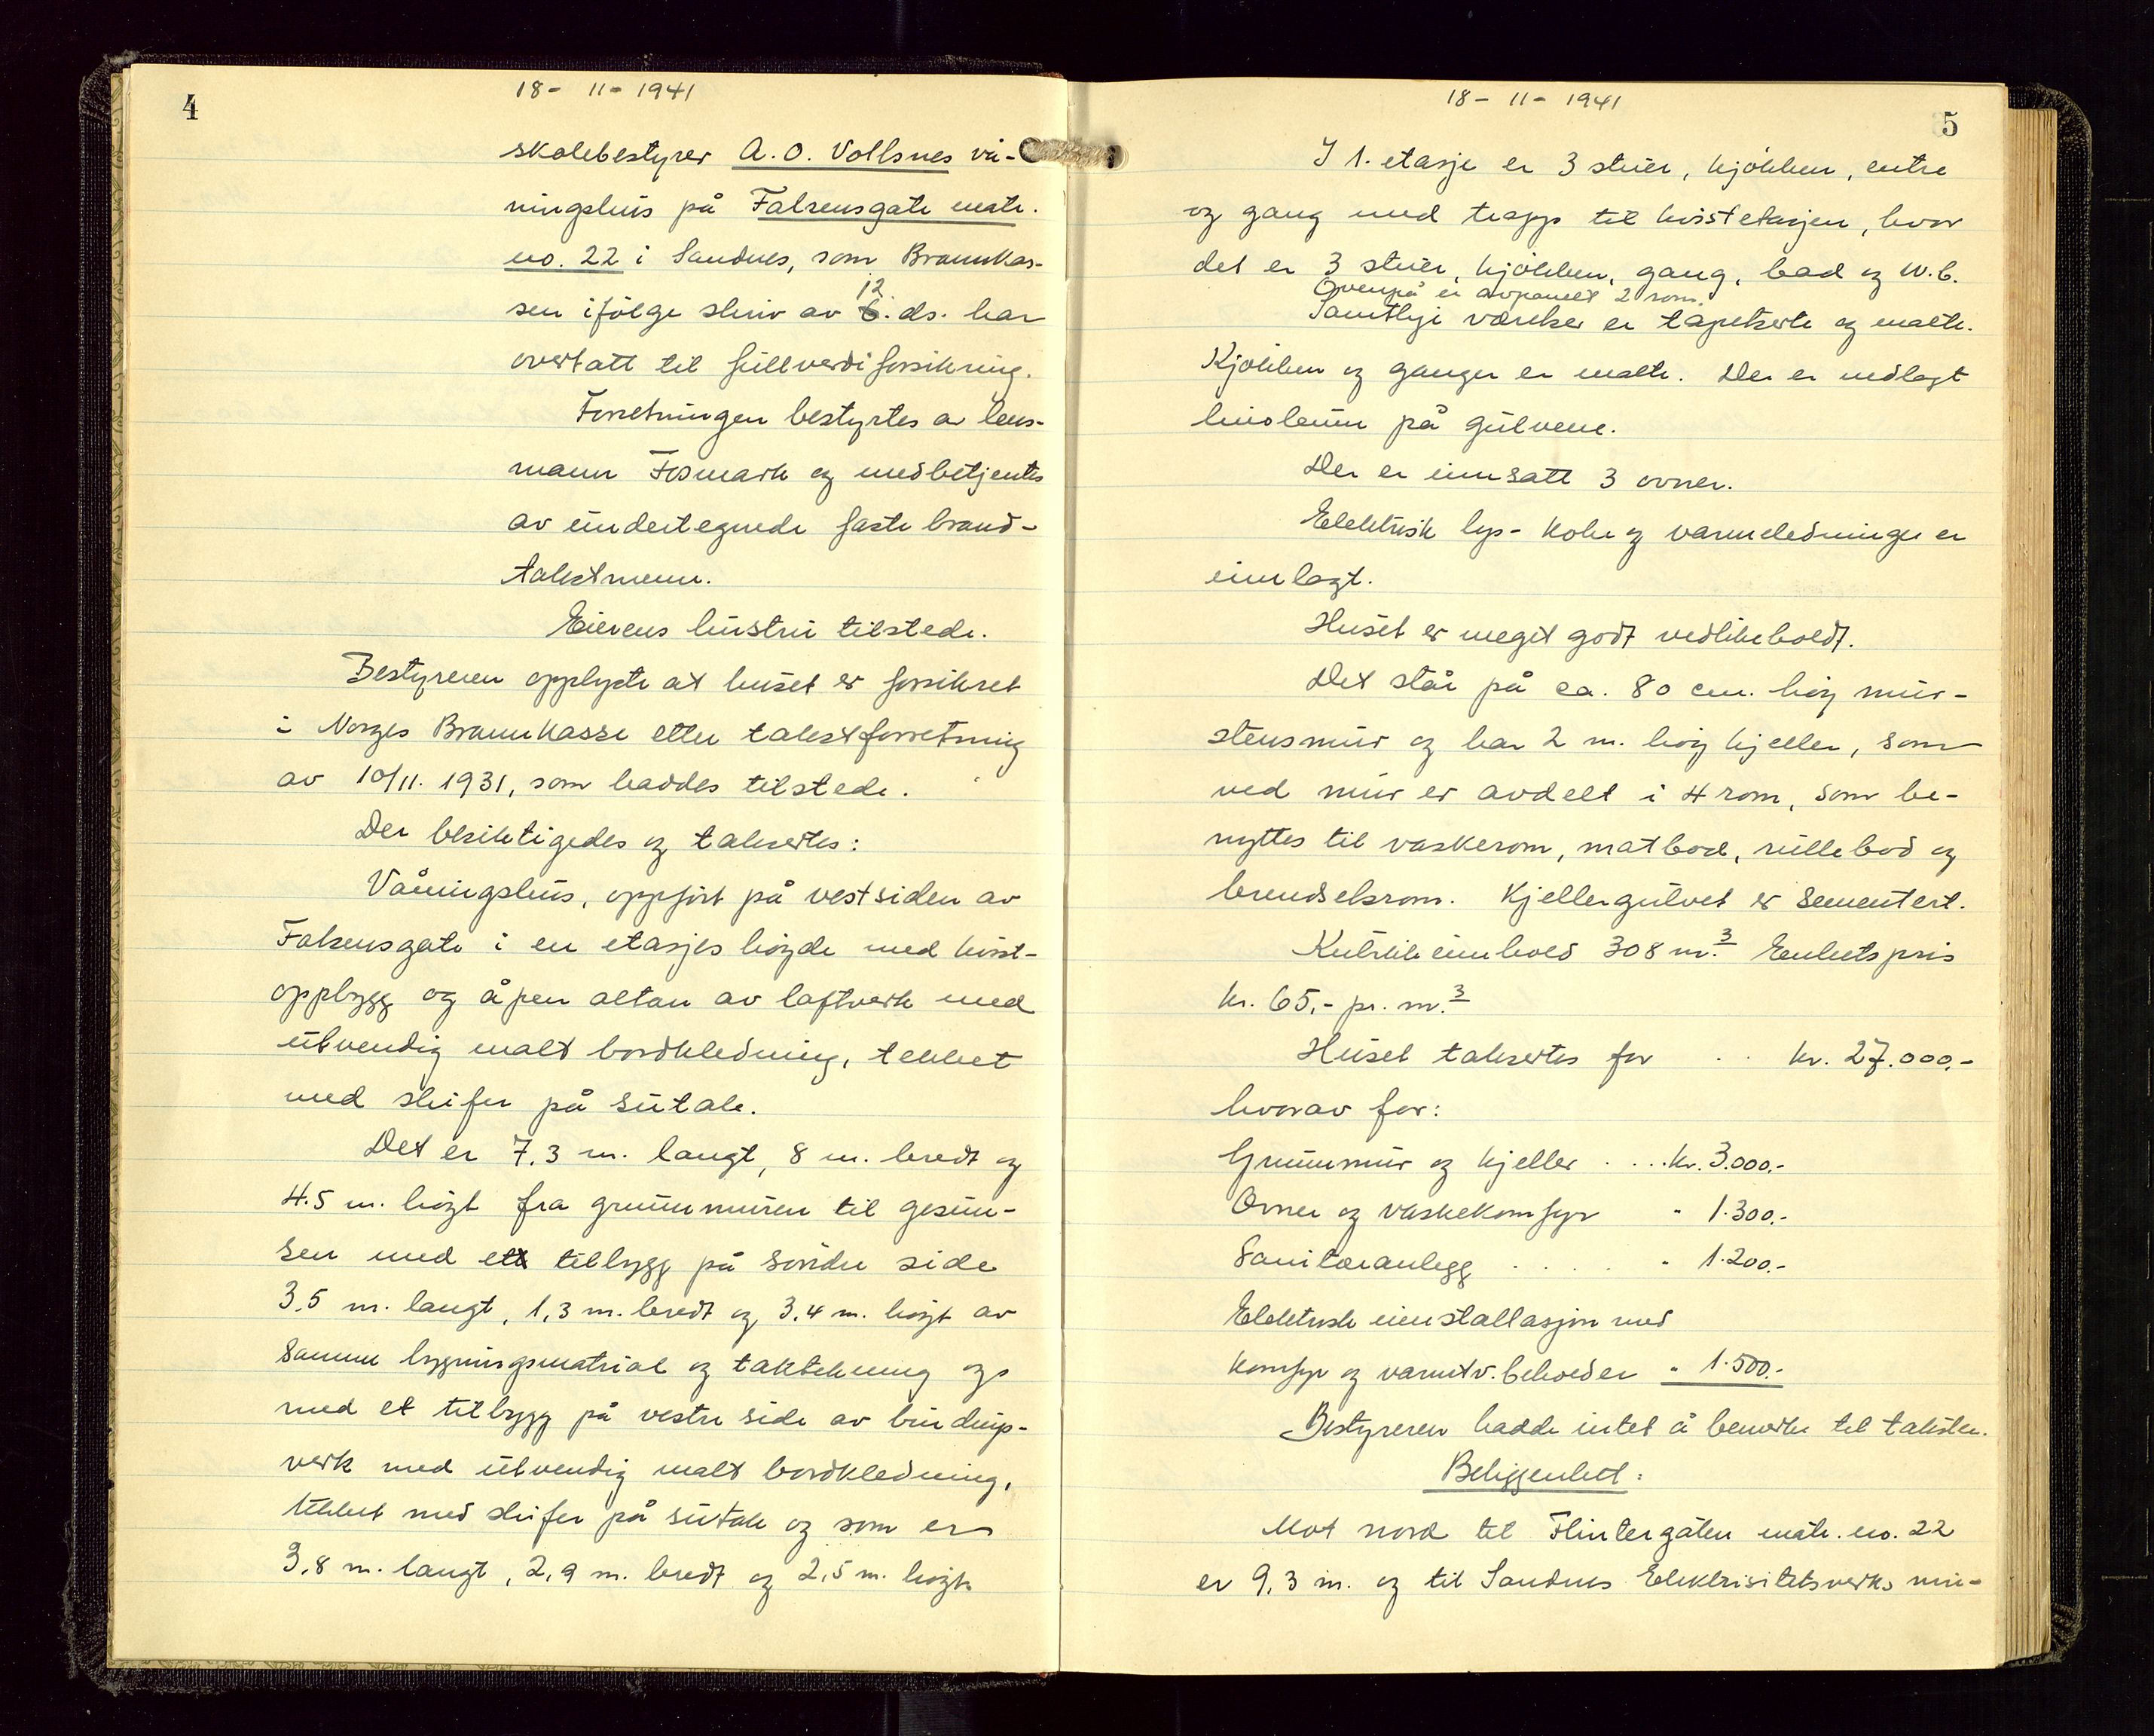 4
18 - 11 - 1941
skolebestyrer A. O. Vollsnes vå-
ningshus på Falsensgate matr.
no. 22 i Sandnes, som Brannkas-
sen ifölge skriv av 12. ds. har
overtatt til fullverdiforsikring.
Forretningen bestyrtes av lens-
mann Fosmark og medbetjentes
av undertegnede faste brand-
takstmenn.
Eierens hustru tilstede.
Bestyreren opplyste at huset er forsikret
i Norges Brannkasse etter takstforretning
av 10/11. 1931, som haddes tilstede.
Der besiktigedes og takserte:
Våningshus, oppfört på vestsiden av
Falsensgate i en etasjes höyde med kvist-
oppbygg og åpen altan av laftverk med
utvendig malt bordkledning, tekket
med skifer på sutak.
Det er 7,3 m. langt, 8 m. bredt og
4.5 m. höyt fra grunnmuren til gesim-
sen med ett tilbygg på söndre side
3,5 m. langt, 1,3 m. bredt og 3,4 m. höyt av
samme bygningsmatrial og taktekning og
med et tilbygg på vestre side av bindings-
verk med utvendig malt bordkledning,
tekket med skifer på sutak og som er
3,8 m. langt, 2,9 m. bredt og 2,5 m. höyt.
5
18 - 11 - 1941
I 1. etasje er 3 stuer, kjökken, entre
og gang med trapp til kvistetasjen, hvor
det er 3 stuer, kjökken, gang, bad og W.C.
Ovenpå er avpanelt 2 rom.
Samtlige værelser er tapetserte og malte.
Kjökken og ganger er malte. Der er nedlagt
linoleum på gulvene.
Der er innsatt 3 ovner.
Elektrisk lys- koke og varmeledninger er
innlagt.
Huset er meget godt vedlikeholdt.
Det står på ca. 80 cm. höy mur-
stensmur og har 2 m. höy kjeller, som
ved mur er avdelt i 4 rom, som be-
nyttes til vaskerom, matbod, rullebod og
brendselsrom. Kjellergulvet er sementert.
Kubikkinnhold 308 m.³ Enhetspris
kr. 65,- pr. m.³
Huset takseres for . . kr. 27.000,-
hvorav for:
Grunnmur og kjeller . . . . kr. 3.000.-
Ovner og vaskekomfyr " 1.300.-
Sanitæranlegg . . . . . " 1.200.-
Elektrisk innstallasjon med
komfyr og varmtv.beholder " 1.500.-
Bestyreren hadde intet å bemerke til taksten.
Beliggenhet:
Mot nord til Flintergaten matr. no. 22
er 9,3 m. og til Sandnes Elektrisitetsverks mu-